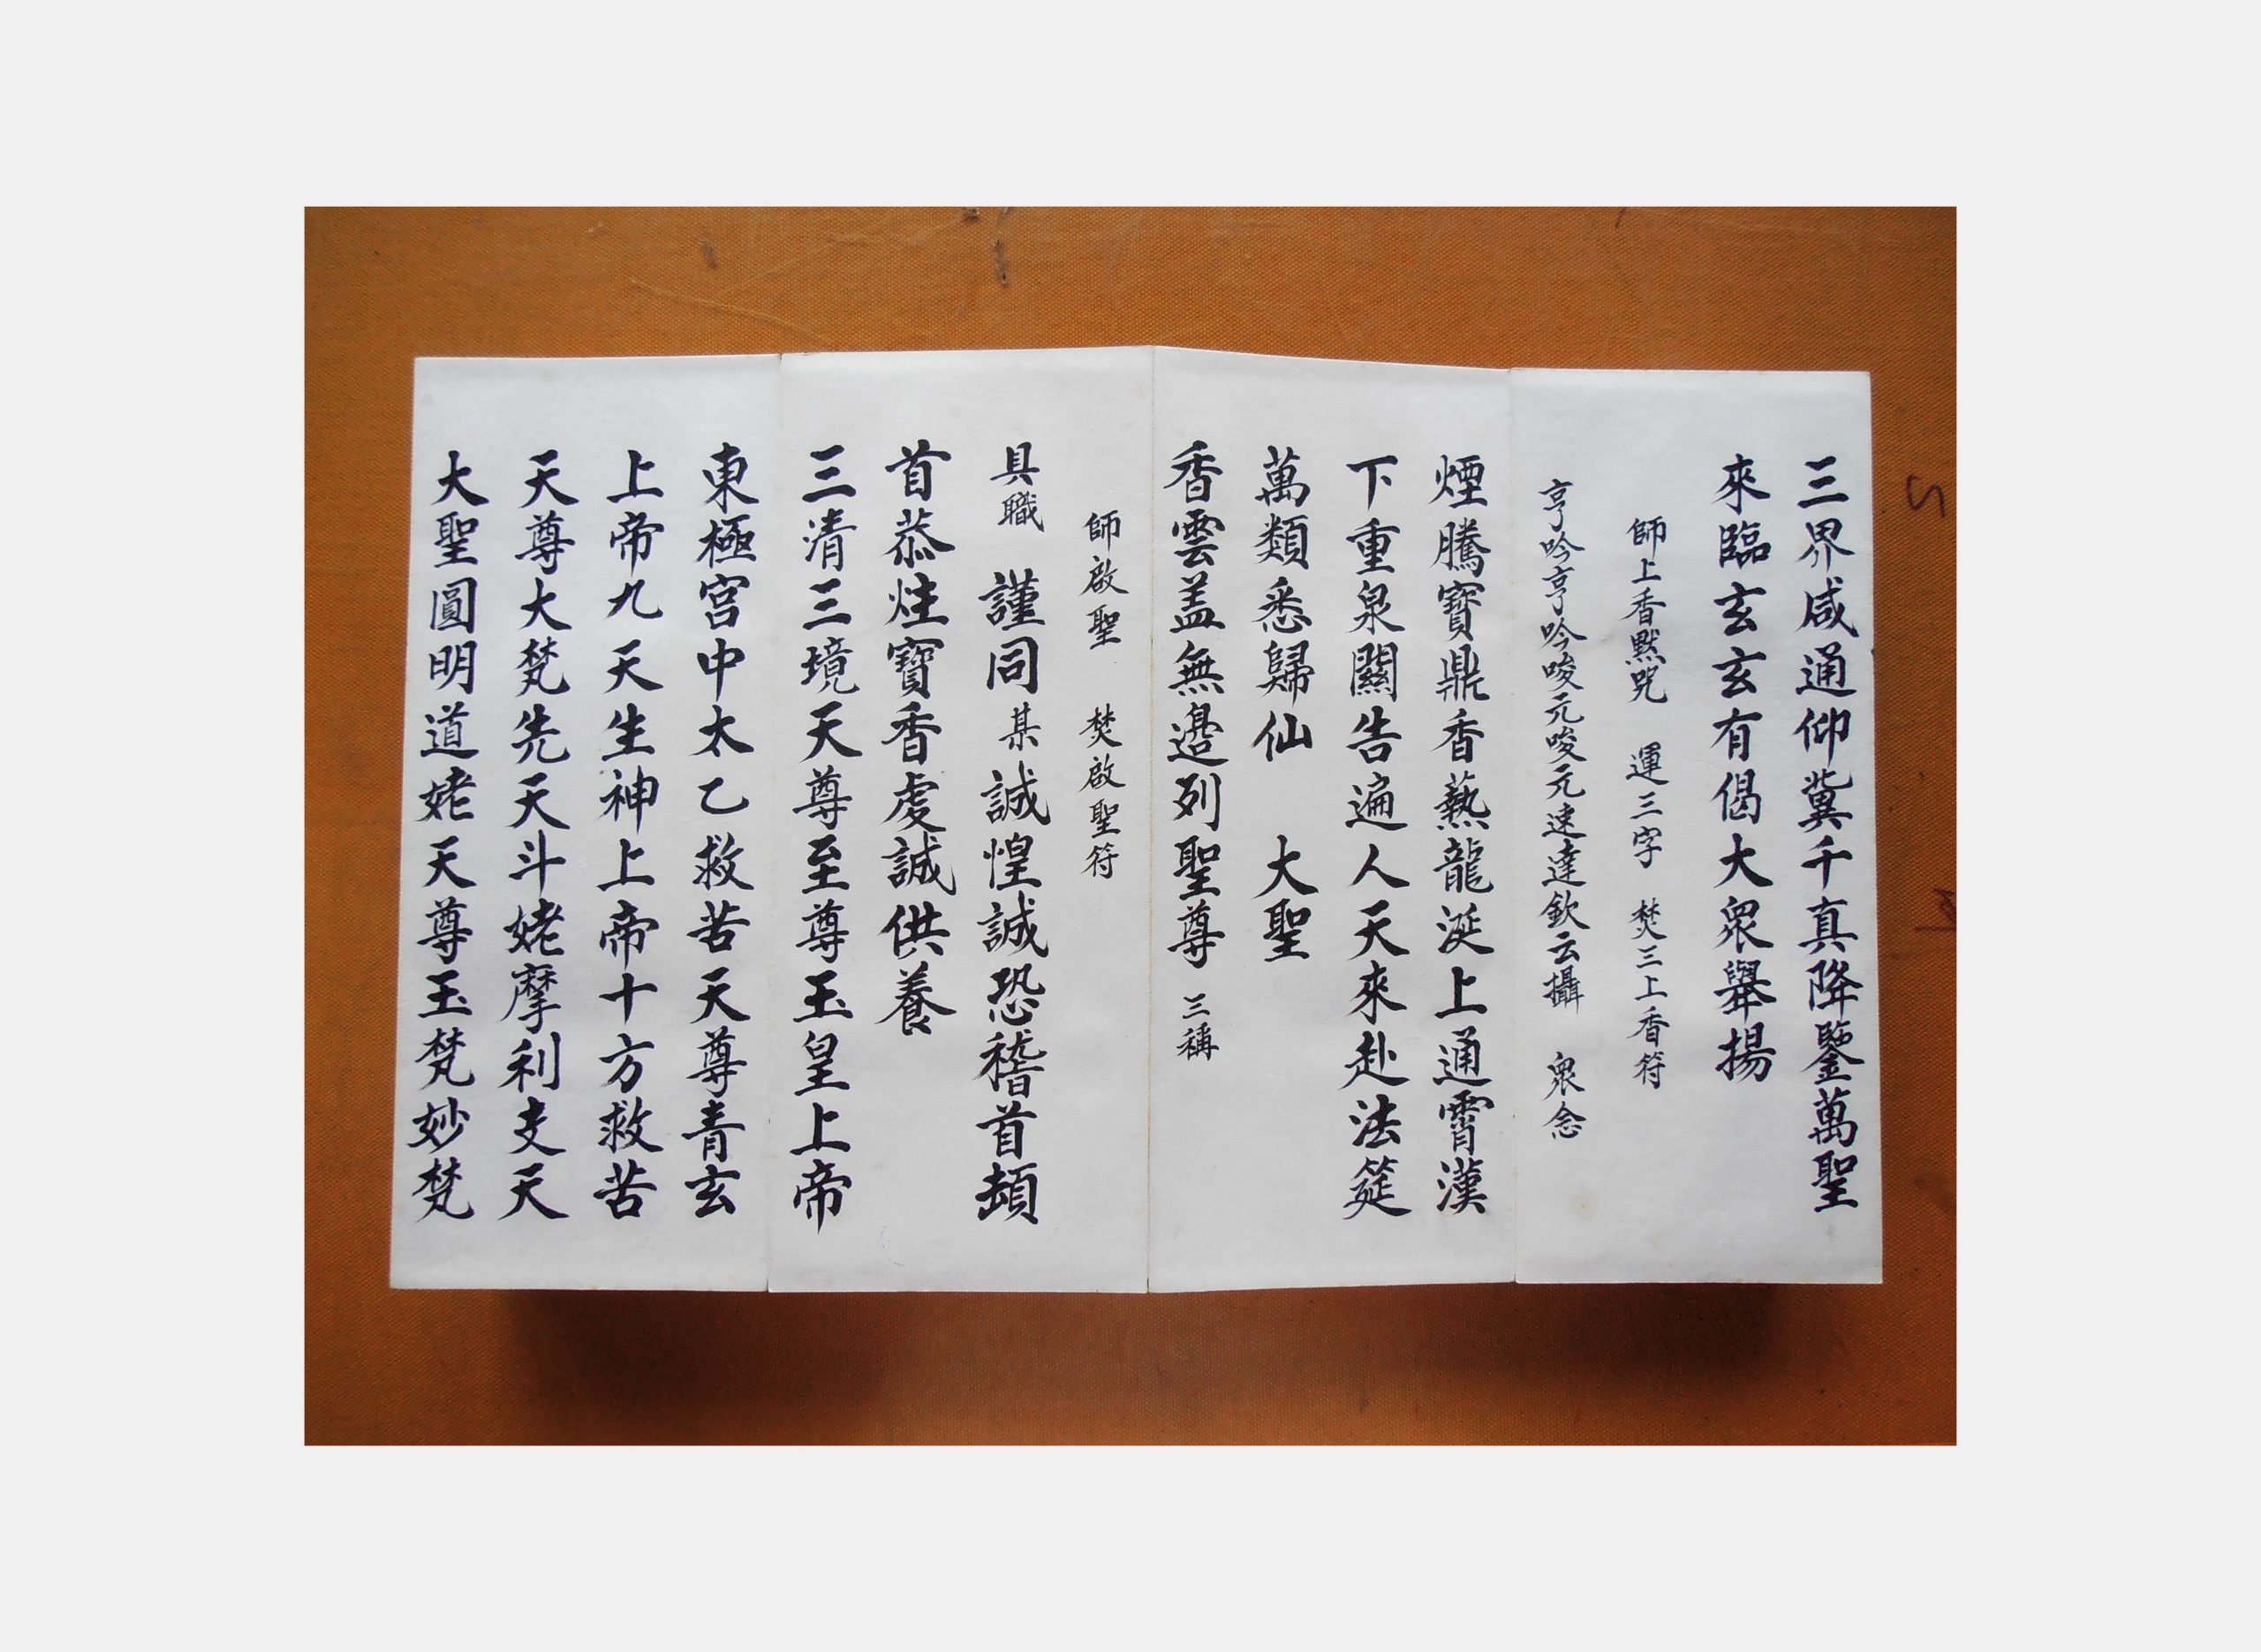 三界咸通仰冀千真降鑒萬聖
來臨玄玄有偈大眾舉揚
師上香默咒 運三字 焚三上香符
亨吟亨亨吟唆元唆元速達欽云攝 眾念
煙騰寶鼎香爇龍涎上通霄漢
下重泉關告遍人天來赴法筵
萬類悉歸仙 大聖
香雲盖無邊列聖尊 三稱
師啟聖 焚啟聖符
具職 謹同某誠惶誠恐稽首頓
首恭炷寶香虔誠供養
三清三境天尊至尊玉皇上帝
東極宮中太乙救苦天尊青玄
上帝九天生神上帝十方救苦
天尊大梵先天斗姥摩利支天
大聖圓明道姥天尊玉梵妙梵